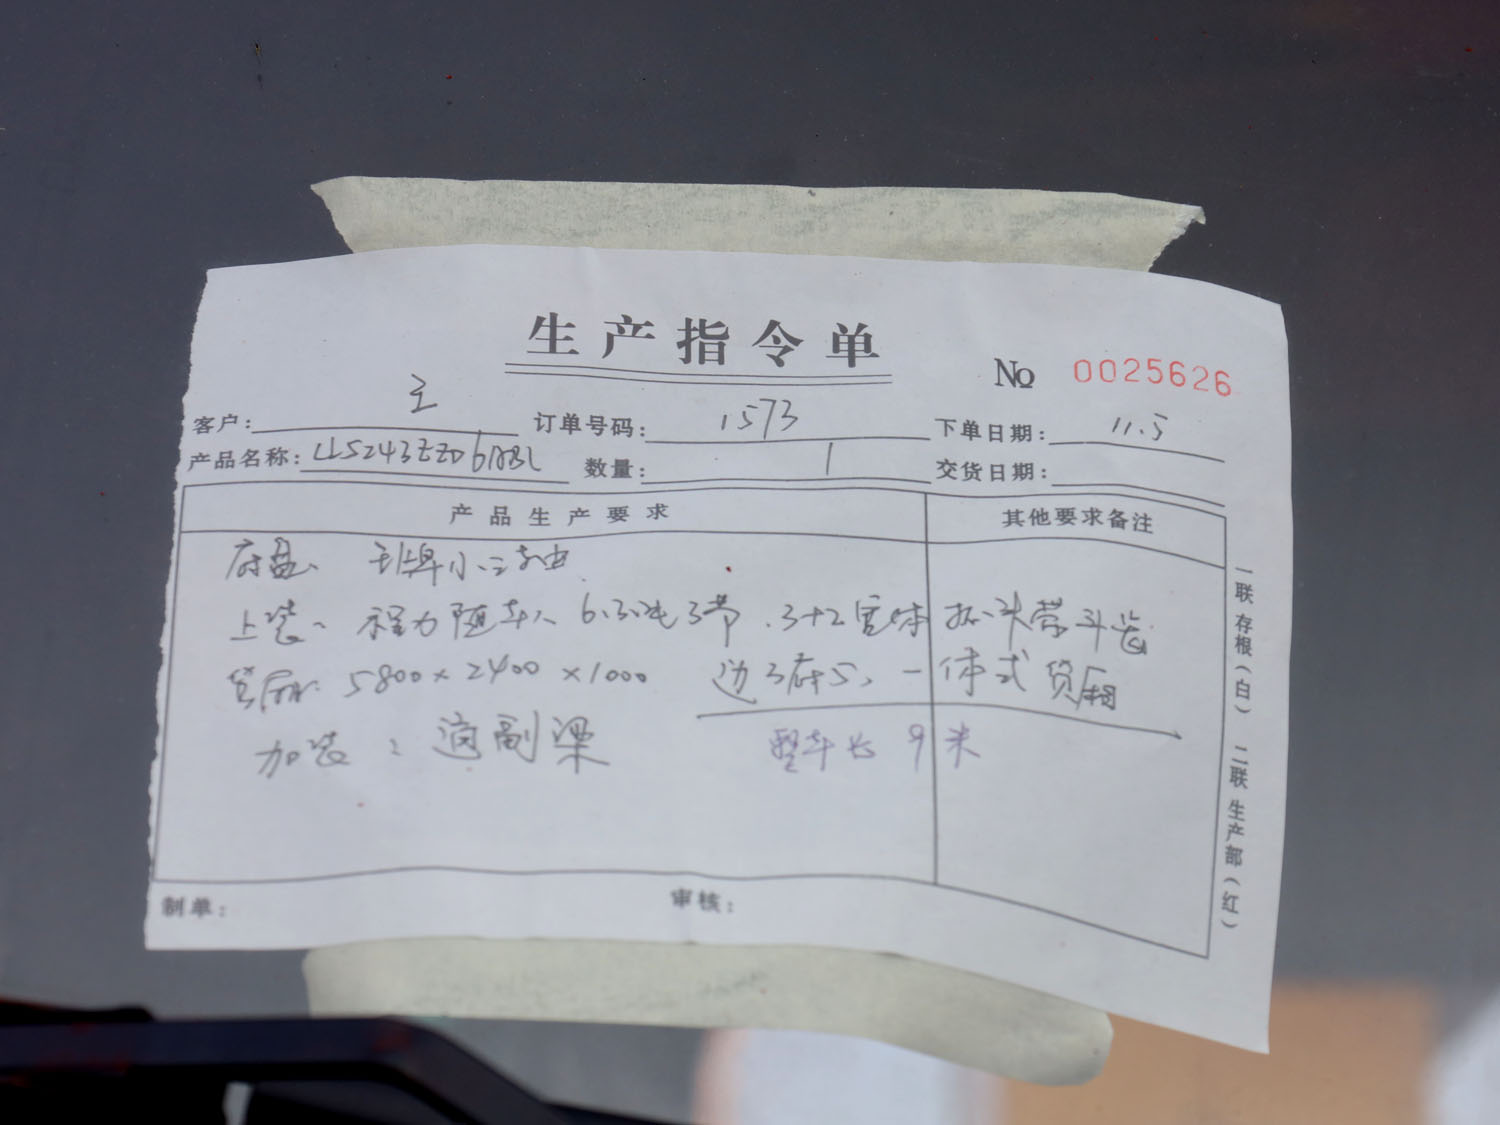 生产指令单
No 0025626
客户: 王 订单号码: 1573 下单日期: 11.5
产品名称: LLS243ZZD6ABL 数量: 1 交货日期:
产品生产要求 其他要求备注
底盘、 王牌小三轴
上装、 程力随车、 6.3吨3节 . 3+2 体 带斗
货厢: 5800×2400×1000 边3底5、一体式货厢
加装: 副梁 整车长9米
制单: 审核:
一联存根(白) 二联生产部(红)